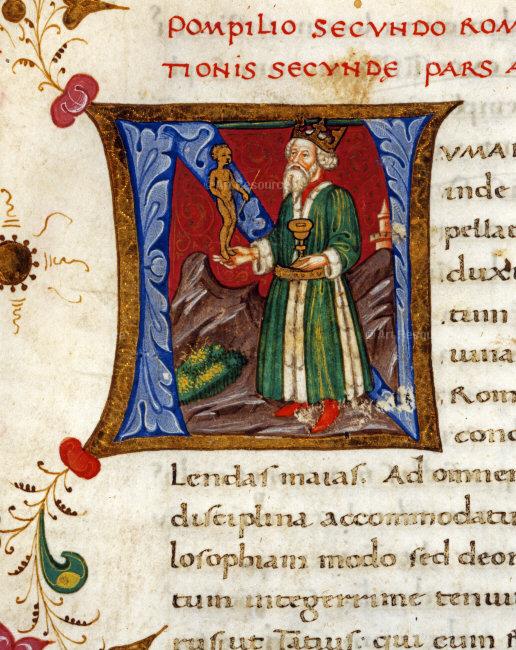 POMPILIO SECVNDO ROM
TIONIS SECVNDĘ PARS A
NVMA
inde
pellat
duxt
tum
uana
Rom
conc
Lendas maias. Ad omnem
disciplina accommodatu
losophiam modo sed deor
tum integerrime tenui
rusiut Tatius: qui cum